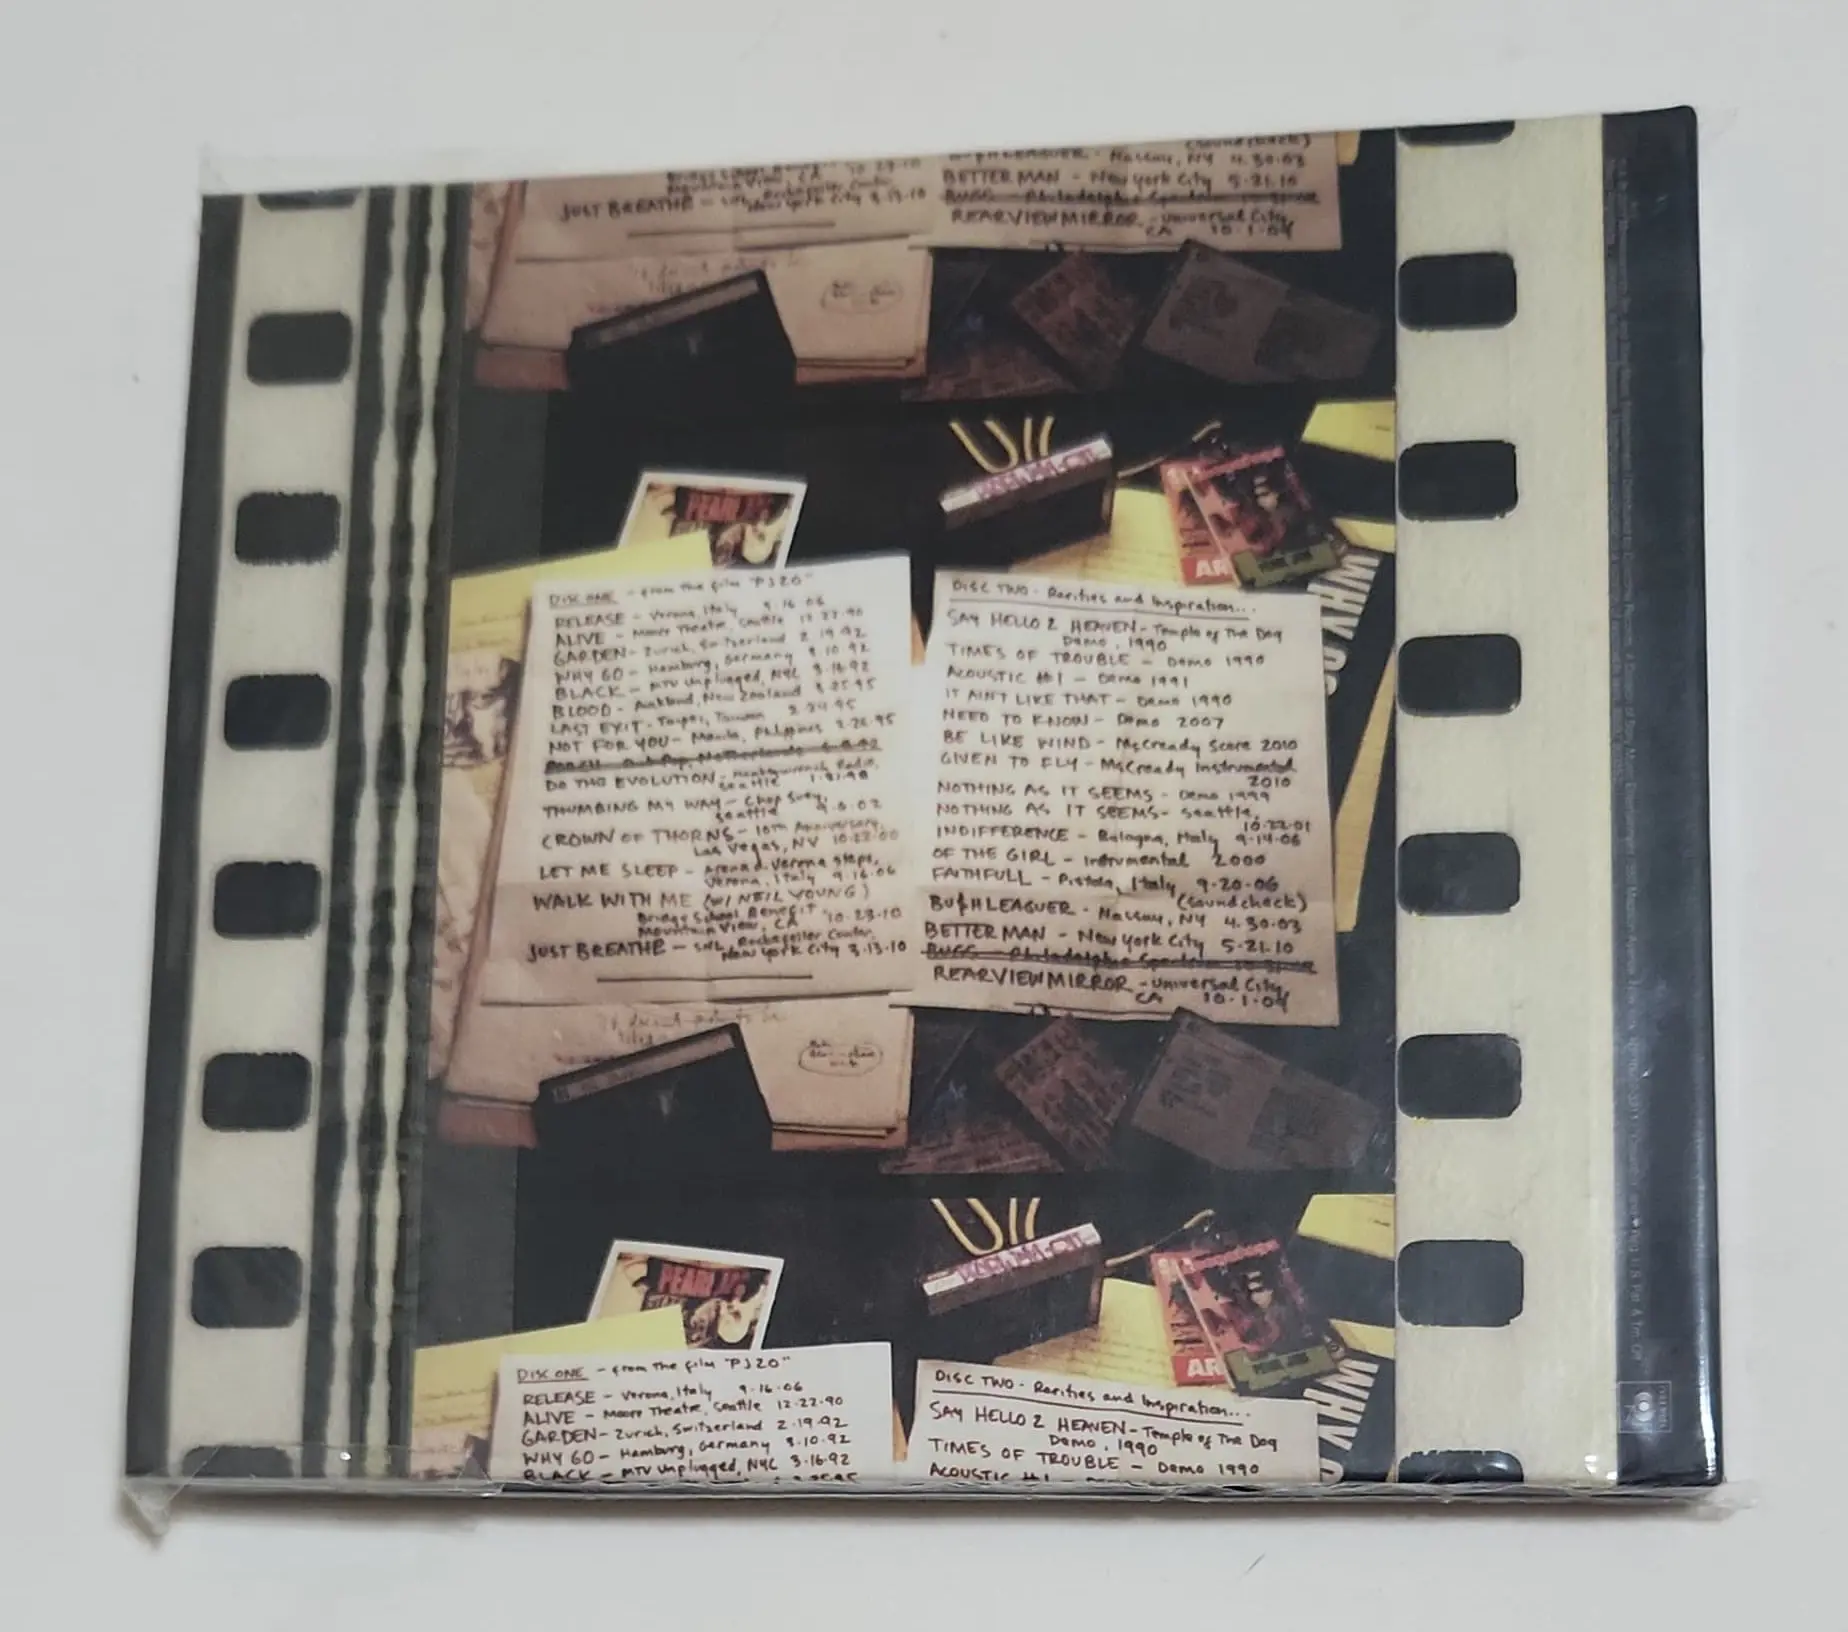 (soundcheck)
BU$HLEAGUER - Nassau, NY 4.30.03
Bridge School Benefit 10-23-10
Mountain View, CA
BETTER MAN - New York City 5-21.10
JUST BREATHE - SNL, Rockefeller Center,
New York City 3.13.10
BUGS - Philadelphia Spectrum
REARVIEWMIRROR - Universal City,
CA 10-1-09
PEARL JAM
DISC ONE - from the film "PJ20"
RELEASE - Verona, Italy 9-16-06
ALIVE - Moore Theatre, Seattle 12-22-90
GARDEN - Zurich, Switzerland 2-19-92
WHY GO - Hamburg, Germany 3-10-92
BLACK - MTV unplugged, NYC 3-16-92
BLOOD - Auckland, New Zealand 3-25-95
LAST EXIT - Taipei, Taiwan 2-24-95
NOT FOR YOU - Manila, Philippines 2-26-95
PORCH - Pink Pop, Netherlands 6-8-92
DO THE EVOLUTION - Monkeywrench Radio,
Seattle 1-31-98
THUMBING MY WAY - Chop Suey,
Seattle 9-6-02
CROWN OF THORNS - 10th Anniversary,
Las Vegas, NV 10-22-00
LET ME SLEEP - Arena d. Verona steps,
Verona, Italy 9-16-06
WALK WITH ME (W/ NEIL YOUNG)
Bridge School Benefit 10-23-10
Mountain View, CA
JUST BREATHE - SNL, Rockefeller Center,
New York City 3-13-10
AR
WHY
DISC TWO - Rarities and Inspiration...
SAY HELLO 2 HEAVEN - Temple of The Dog
Demo, 1990
TIMES OF TROUBLE - Demo 1990
ACOUSTIC #1 - Demo 1991
IT AIN'T LIKE THAT - Demo 1990
NEED TO KNOW - Demo 2007
BE LIKE WIND - McCready Score 2010
GIVEN TO FLY - McCready Instrumental
2010
NOTHING AS IT SEEMS - Demo 1999
NOTHING AS IT SEEMS - Seattle,
10-22-01
INDIFFERENCE - Bologna, Italy 9-14-06
OF THE GIRL - Instrumental 2000
FAITHFULL - Pistoia, Italy 9-20-06
(soundcheck)
BU$HLEAGUER - Nassau, NY 4.30.03
BETTER MAN - New York City 5-21.10
BUGS - Philadelphia Spectrum
REARVIEWMIRROR - Universal City,
CA 10-1-09
PEARL JAM
DISC ONE - from the film "PJ20"
RELEASE - Verona, Italy 9-16-06
ALIVE - Moore Theatre, Seattle 12-22-90
GARDEN - Zurich, Switzerland 2-19-92
WHY GO - Hamburg, Germany 3-10-92
BLACK - MTV unplugged, NYC 3-16-92
AR
WHY
DISC TWO - Rarities and Inspiration...
SAY HELLO 2 HEAVEN - Temple of The Dog
Demo, 1990
TIMES OF TROUBLE - Demo 1990
ACOUSTIC #1 - Demo